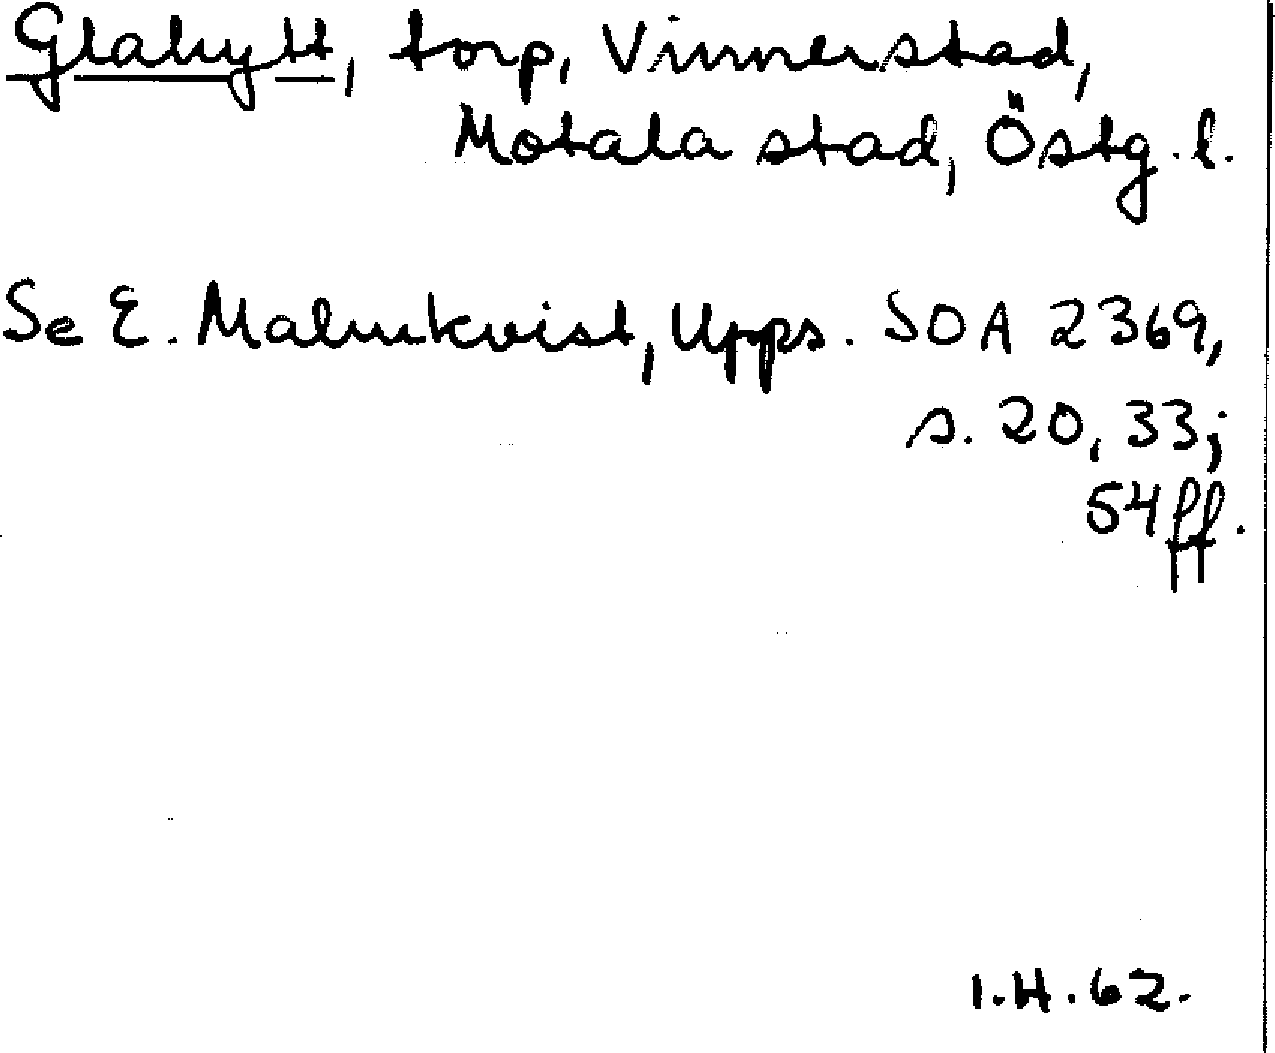 Glahytt, torp, Vinnerstad,
Motala stad, Östg. l.
Se E. Malmkvist, Upps. SOA 2369,
s. 20, 33;
54 ff.
I.H. 62.